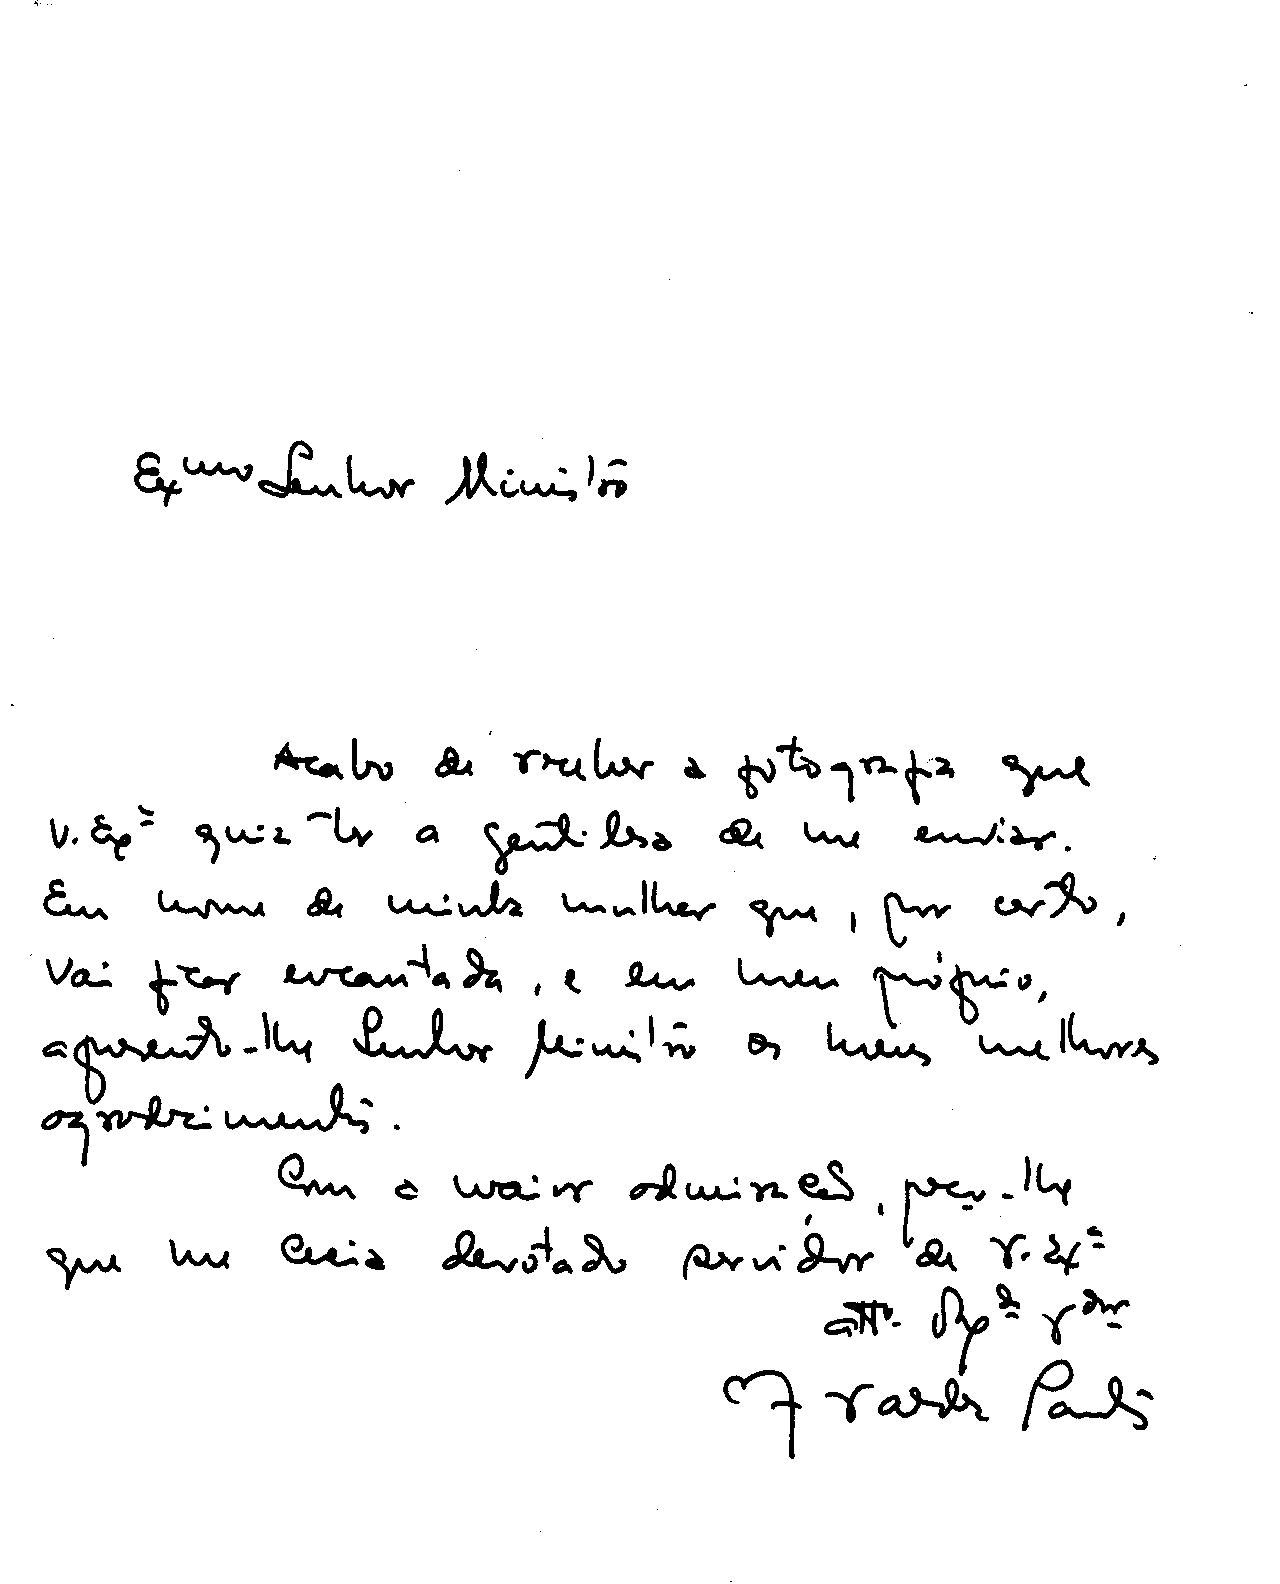 Exmo Senhor Ministro
Acabo de receber a fotografia que
V. Exª quiz ter a gentilesa de me enviar.
Em nome de minha mulher que, por certo,
vai ficar encantada, e em meu próprio,
apresento-lhe Senhor Ministro os meus melhores
agradecimentos.
Com a maior admiração, peço-lhe
que me creia devotado servidor de V. Exª
attº
Paulo